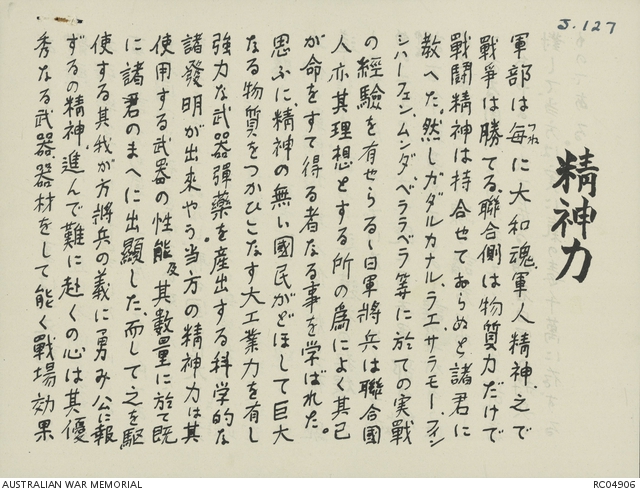 J.127
精神力
軍部は毎に大和魂、軍人精神、之で
つね
戦爭は勝てる、聯合側は物質力だけで
戰鬪精神は持合せておらぬと諸君に
教へた、然しガダルカナル、ラエ、サラモー、フィン
シハーフェン、ムンダ、ベララベラ等に於ての実戦
の経驗を有せらるゝ日軍將兵は聯合國
人亦其理想とする所の為によく其己
が命をすて得る者なる事を学ばれた。
思ふに、精神の無い國民がどほして巨大
なる物質をつかひこなす大工業力を有し
強力な武器彈藥を産出する科学的な
諸發明が出來やう。当方の精神力は其
使用する武器の性能及其数量に於て既
に諸君のまへに出顯した、而して之を駆
使する其我が方將兵の義に勇み公に報
ずるの精神、進んで難に赴くの心は其優
秀なる武器、器材をして能く戰場効果
AUSTRALIAN WAR MEMORIAL
RC04906